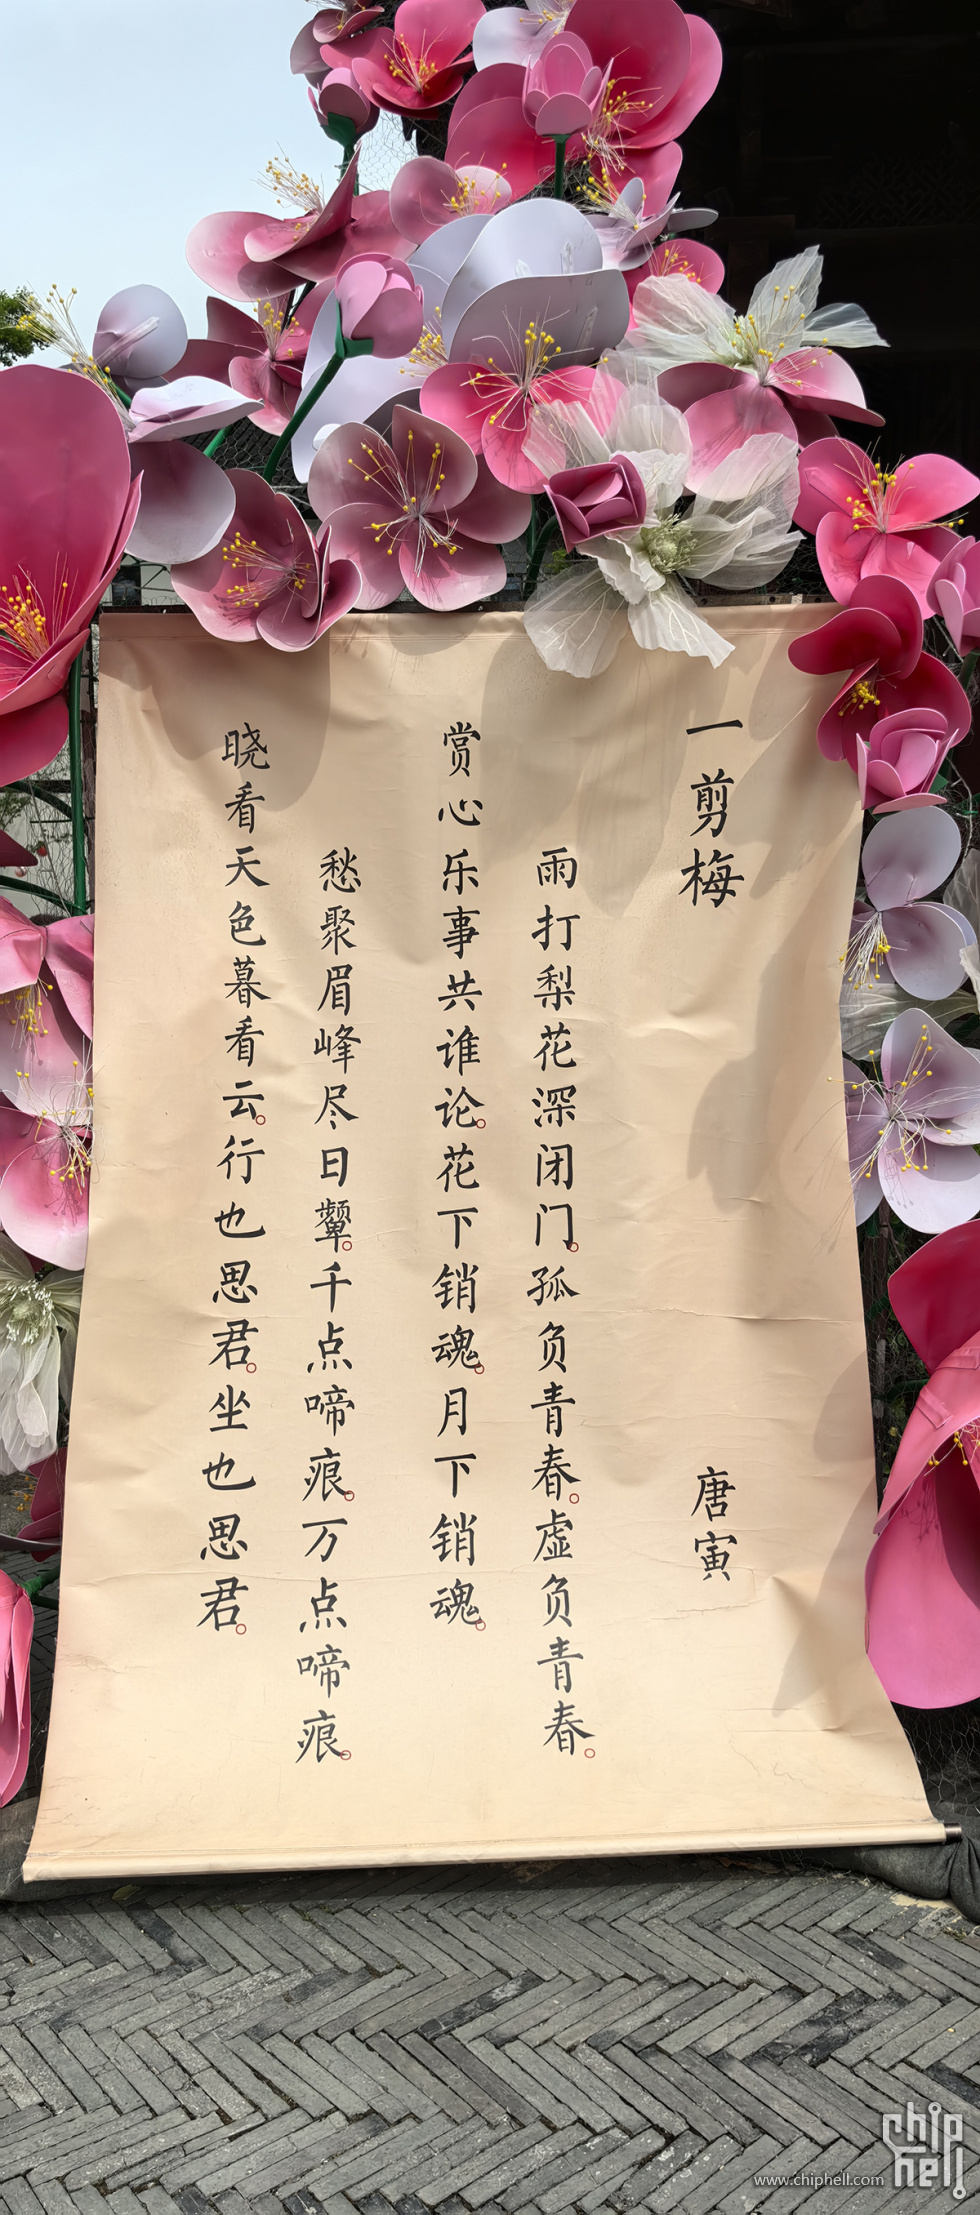 一剪梅
唐寅
雨打梨花深闭门。孤负青春。虚负青春。
赏心乐事共谁论。花下销魂。月下销魂。
愁聚眉峰尽日颦。千点啼痕。万点啼痕。
晓看天色暮看云。行也思君。坐也思君。
www.chiphell.com
chip
hell